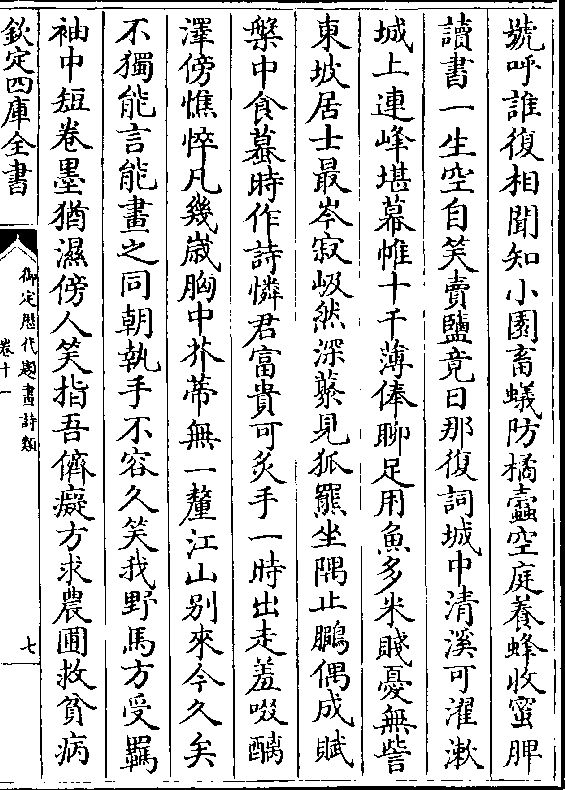 號呼誰復相聞知小園畜蟻防橘蠹空庭養蜂收蜜脾
讀書一生空自笑賣鹽竟日那復詞城中清溪可濯漱
城上連峰堪幕帷十千薄俸聊足用魚多米賤憂無訾
東坡居士最岑寂岌然深藂見狐羆坐隅止鵬偶成賦
槃中食蟇時作詩憐君富貴可炙手一時出走羞啜醨
澤傍憔悴凡幾歲胸中芥蒂無一釐江山别來今久矣
不獨能言能畫之同朝執手不容久笑我野馬方受羈
袖中短卷墨猶濕傍人笑指吾儕癡方求農圃救貧病
欽定四庫全書
御定歷代題畫詩類
卷十一
七